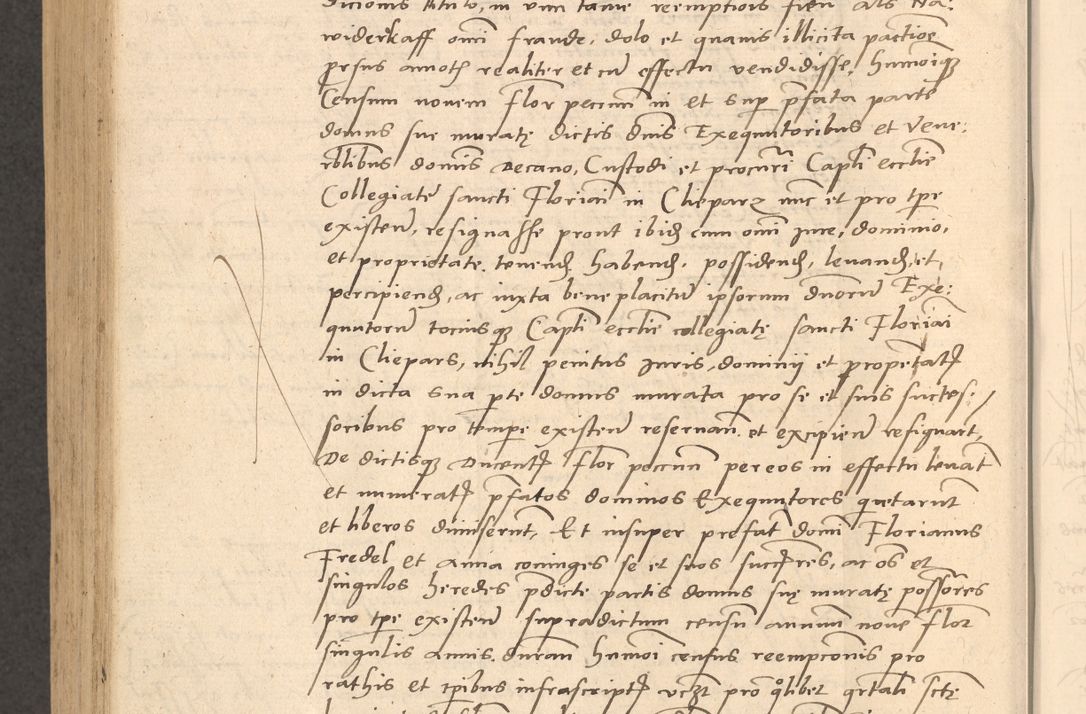 widerkaff omi fraude, dolo et quamis illicita pactioe
prsus amoth realiter et cu effectu vendidisse, humoiqz
Censum novem flor peccunn in et sup pfata parte
domus sue muratę dictis dnis Exequutoribus et Vene:
rblibus domis Decano, Custodi et procuri Capli ecclie
Collegiate sancti Floriai in Clieparz nuc et pro tpe
existen, resignasse prout ibid cum omi jure, dominio,
et proprietate tenend habend, possidend, levand, et
percipiend, ac iuxta beneplacitu ipsorum dnoru Exe:
quutoru totiusqz Capli ecclie collegiatę sancti Floriai
in Clepars, nihil penitus juris, dominij et propetat
in dicta sua pte domus murata pro se et suis succes:
soribus pro tempe existen reservan et excipien resignart,
De dictisqz Ducent flor peccun per eos in effectu levat
et numerat pfatos dominos Exequutores quetarunt
et liberos dimiserunt, Et insuper prefat domi Florianus
Fredel et Anna coniuges se et suos succres, ac os et
singulos heredes pdicte partis domus suę muratę possores
pro tpe existen supradictum censu annuum nove flor
singulis annis duran humoi census reempconis pro
rathis et tpibus infrascript vczt pro qlibet qrtali sctę